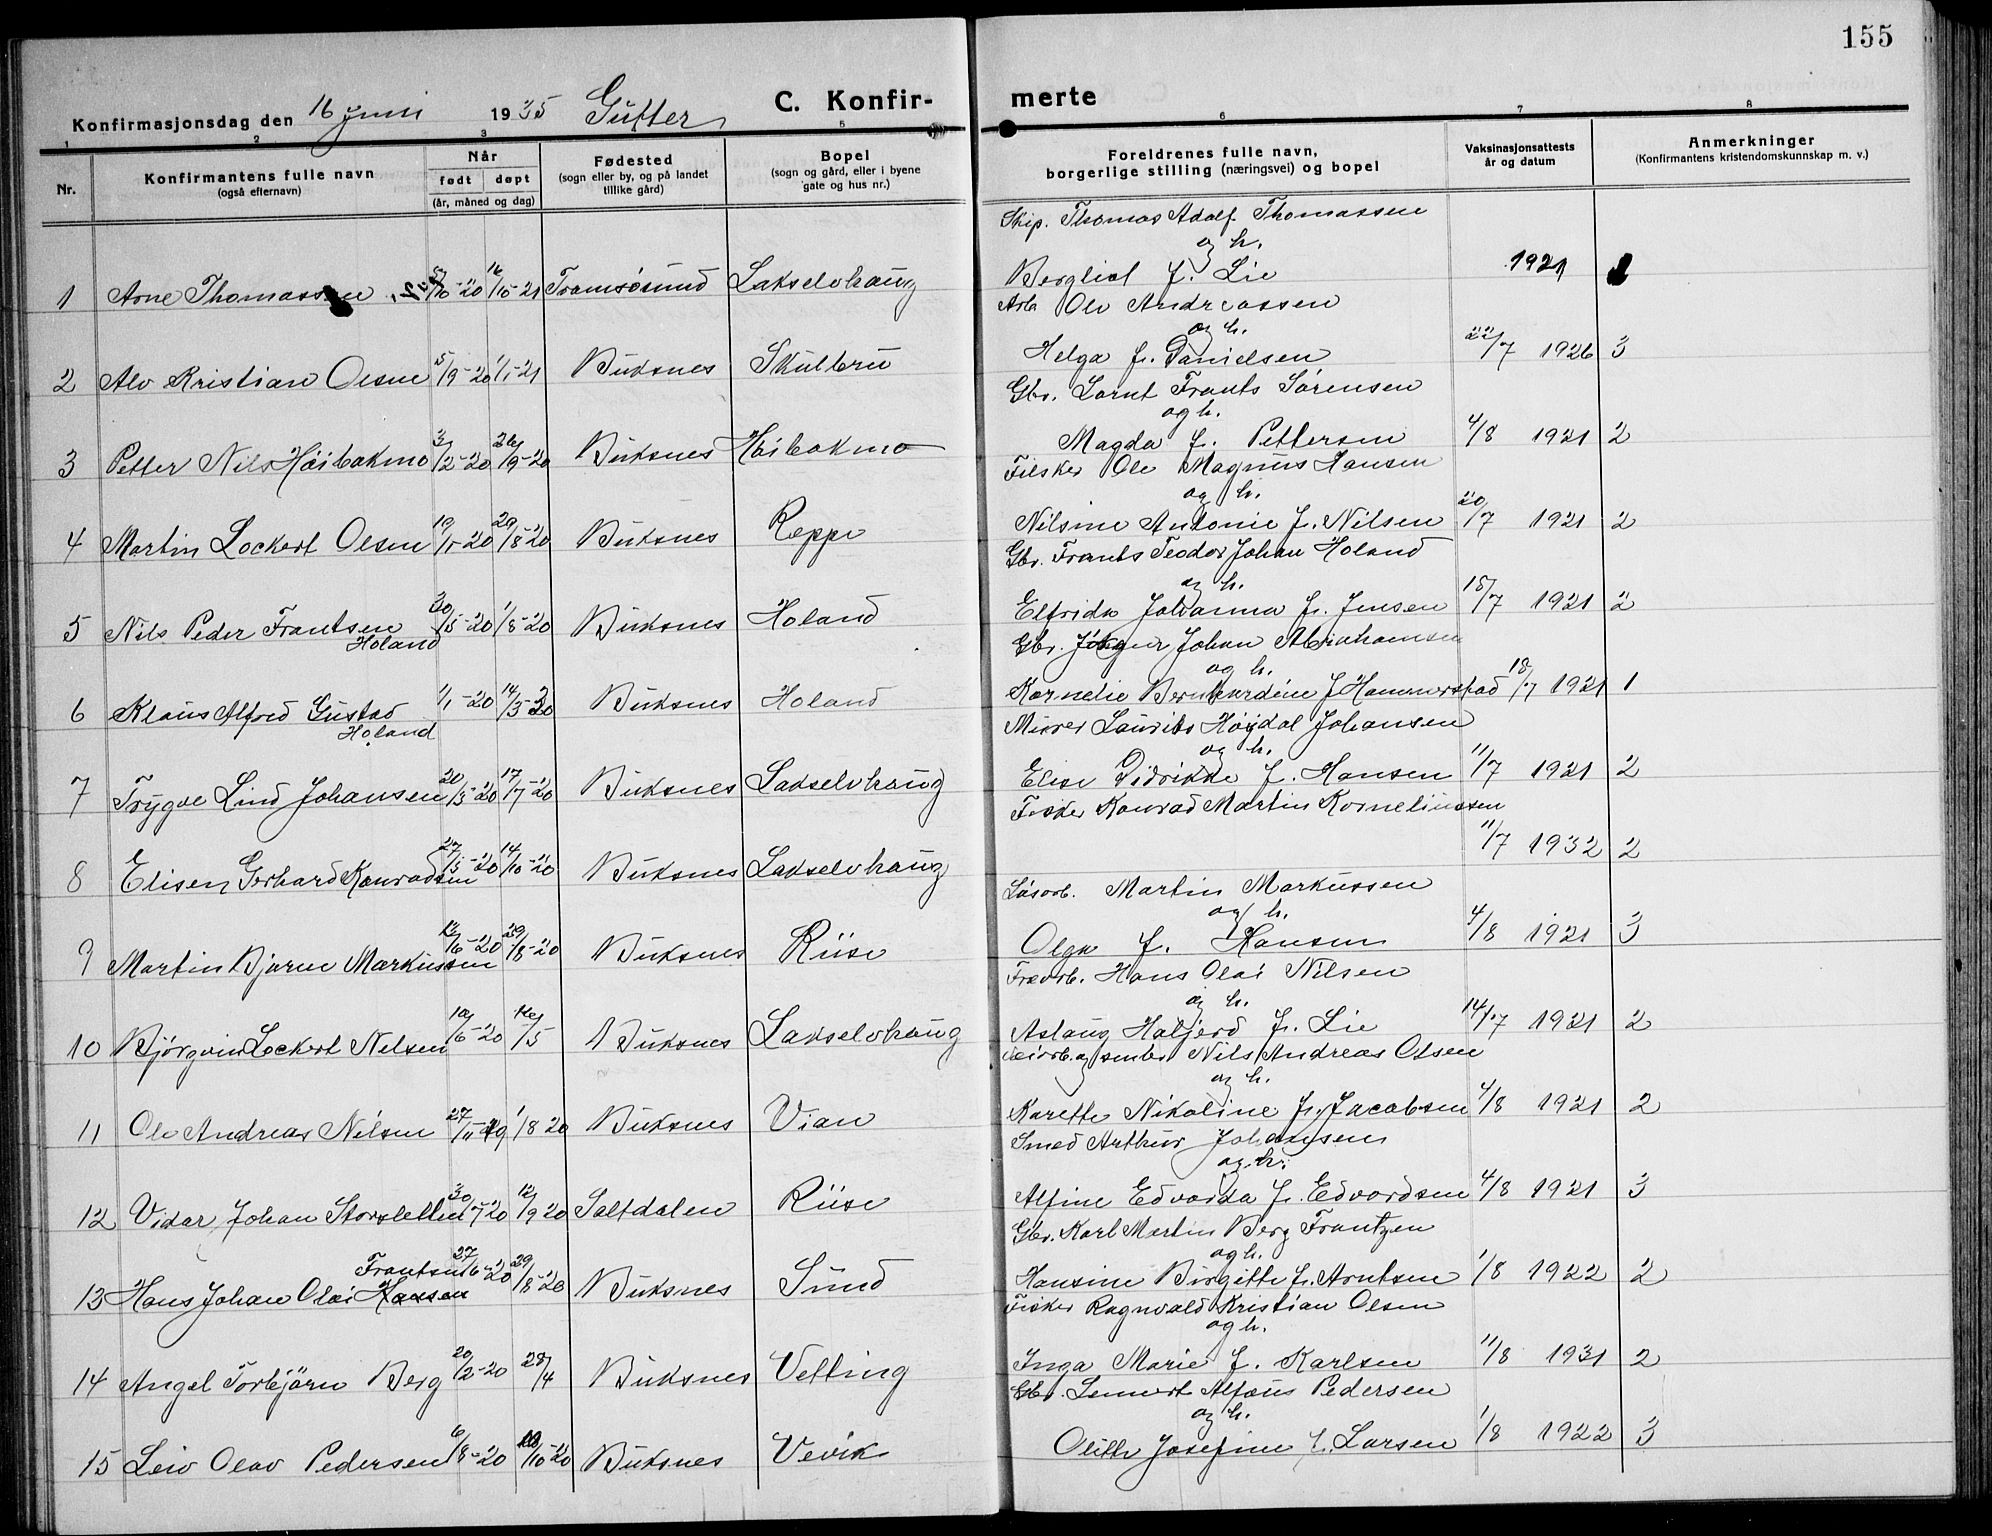 155
Konfirmasjonsdag den 16 Juni 1935 Gutter C. Konfir-merte
1 2 3 5 6 7 8
Nr.
Konfirmantens fulle navn
(også efternavn)
Når
født døpt
(år, måned og dag)
Fødested
(sogn eller by, og på landet
tillike gård)
Bopel
(sogn og gård, eller i byene
gate og hus nr.)
Foreldrenes fulle navn,
borgerlige stilling (næringsvei) og bopel
Vaksinasjonsattests
år og datum
Anmerkninger
(Konfirmantens kristendomskunnskap m. v.)
Skip. Thomas Adolf Thomassen
og h.
1 Arne Thomassen /10-20 16/10-21 Tromsösund Lakselvhaug Bergliot f. Lie 1921
Arb Ole Andreassen
og h.
2 Alv Kristian Olsen 5/9-20 1/1-21 Buksnes Skulbru Helga f. Danielsen 22/7 1926 3
Gbr. Lornt Frants Sörensen
og h.
3 Petter Nils Höibakmo 3/2-20 26/9-20 Buksnes Höibakmo Magda f. Pettersen 4/8 1921 2
Fisker Ole Magnus Hansen
og h.
4 Martin Lockert Olsen 19/1-20 29/8-20 Buksnes Reppe Nilsine Antonie f. Nilsen 20/7 1921 2
Gbr. Frants Teodor Johan Holand
og h.
5 Nils Peder Frantsen 30/5-20 1/8-20 Buksnes Holand Elfrida Johanna f. Jensen 15/7 1921 2
Holand
Gbr. Johan Abrahamsen
og h.
6 Klaus Alfred Gustav 1/1-20 14/3-20 Buksnes Holand Kornelie Bernhardine f Hammerstad 18/7 1921 1
Holand
Murer Laurits Høydal Johansen
og h.
7 Trygve Lind Johansen 20/3-20 17/7-20 Buksnes Lakselvhaug Elise Didrikke f. Hansen 11/7 1921 2
Fisker Konrad Martin Korneliussen
8 Elisen Gerhard Konradsen 27/5-20 14/10-20 Buksnes Lakselvhaug 11/7 1932 2
Løsarb. Martin Markussen
og h.
9 Martin Bjarne Markussen /6-20 29/8-20 Buksnes Riise Olga f. Hansen 4/8 1921 3
Hans Olai Nilsen
og h.
10 Björgvin Lockert Nilsen 19/6-20 16/5 Buksnes Lakselvhaug Aslaug f. Lie 14/7 1921 2
Nils Andreas Olsen
og h.
11 Ole Andreas Nilsen 27/11-19 1/8 20 Buksnes Vian Karette Nikoline f. Jacobsen 4/8 1921 2
Smed Arthur Johansen
og h.
12 Vidar Johan Storsletten 30/7-20 12/9 20 Saltdalen Riise Alfine Edvarda f. Edvardsen 4/8 1921 3
Gbr. Karl Martin Berg Frantzen
og h.
Frantsen
13 Hans Johan Olai Hansen 27/6-20 29/8-20 Buksnes Sund Hansine Birgitte f. Arntsen 1/8 1922 2
Fisker Ragnvald Kristian Olsen
og h.
14 Angel Torbjörn Berg 20/2-20 28/4 Buksnes Vetting Inga Marie f. Karlsen 11/8 1931 2
Gbr. Lennert Alfæus Pedersen
og h.
15 Leiv Olav Pedersen 6/8-20 /10-20 Buksnes Vevik Josefine f. Larsen 1/8 1922 3